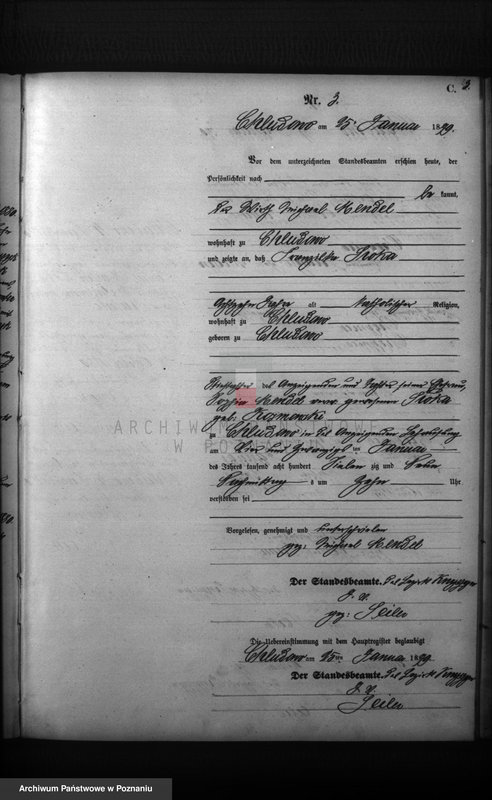 C. 3.
Nr. 3.
Chludowo am 25 Januar 1879.
Vor dem unterzeichneten Standesbeamten erschien heute, der
Persönlichkeit nach
be kannt,
der Wirth Michael Mendel
wohnhaft zu Chludowo
und zeigte an, daß Franziska Sroka
alt katholischer Religion,
wohnhaft zu Chludowo
geboren zu Chludowo
Stieftochter des Anzeigender und Tochter seiner Ehefrau,
Mendel gewesenen Sroka
geb.
zu Chludowo in des Anzeigender Behausung
am vier und zwanzigsten Januar
des Jahres tausend acht hundert sieben zig und neun
Nachmittags um zehn Uhr
verstorben sei
Vorgelesen, genehmigt und unterschrieben
gez. Michael Mendel
Der Standesbeamte.
gez: Seiler
Die Uebereinstimmung mit dem Hauptregister beglaubigt
Chludowo am 25 ten Januar 1879
Der Standesbeamte.
Seiler
ARCHIWUM PAŃSTWOWE
W POZNANIU
Archiwum Państwowe w Poznaniu